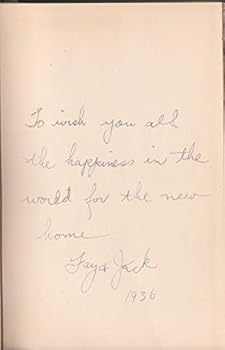 To wish you all
the happiness in the
world for the new
home
Fay & Jack
1936